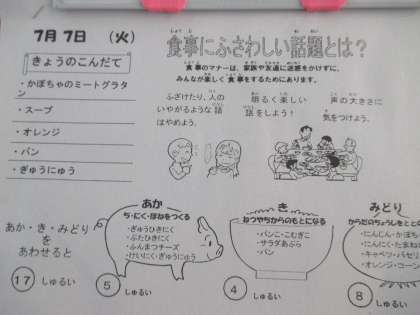 7月7日 (火)
きょうのこんだて
・かぼちゃのミートグラタン
・スープ
・オレンジ
・パン
・ぎゅうにゅう
食事にふさわしい話題とは?
食事のマナーは、家族や友達に迷惑をかけずに、
みんなが楽しく食事をするためにあります。
ふざけたり、人の
いやがるような話
はやめよう。
明るく楽しい
話をしよう!
声の大きさに
気をつけよう。
あか・き・みどり
を
あわせると
17 しゅるい
あか
ち・にく・ほねをつくる
・ぎゅうひきにく
・ぶたひきにく
・ふんまつチーズ
・けいにく・ぎゅうにゅう
5 しゅるい
き
ねつやちからのもとになる
・パンこ・こむぎこ
・サラダあぶら
・パン
4 しゅるい
みどり
からだのちょうしをとと
・にんじん・かぼち
・にんにく・たまね
・キャベツ・パセリ
・オレンジ・コー
8 しゅるい